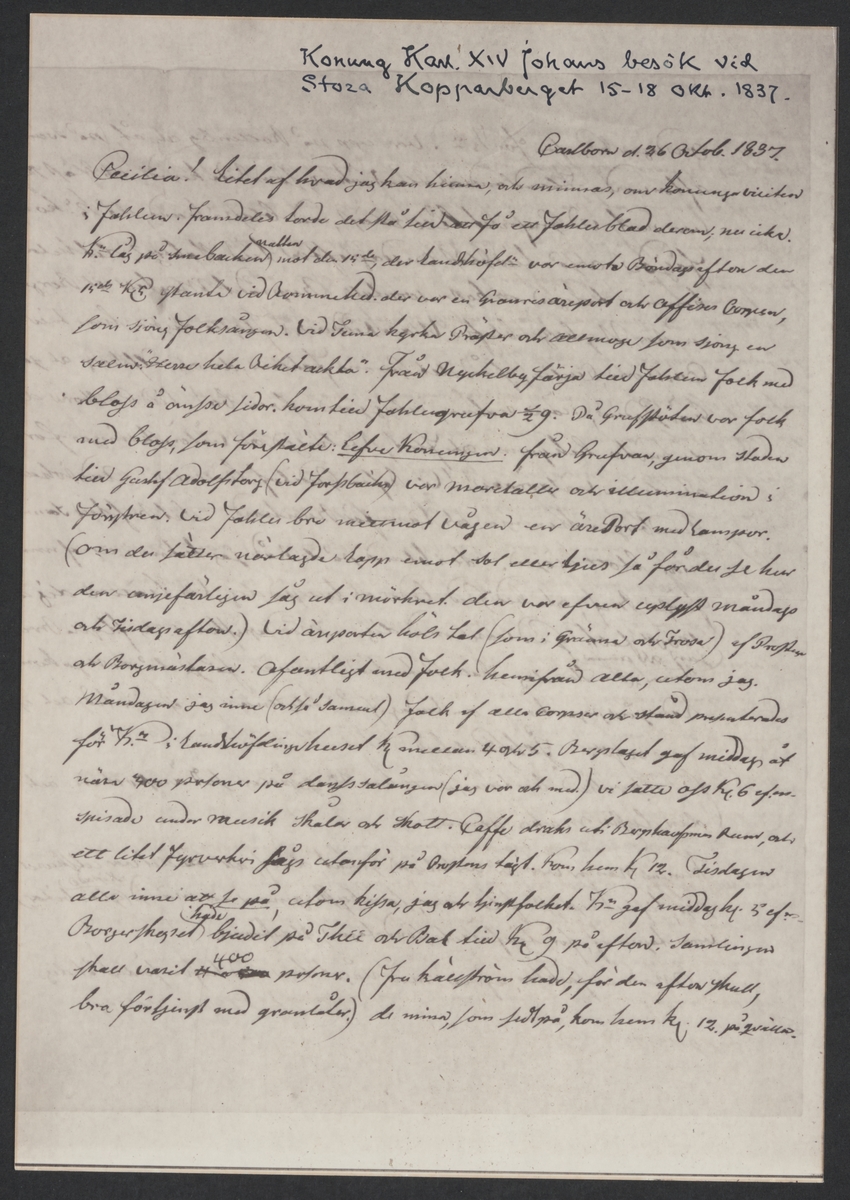 Konung Karl XIV Johans besök vid
Stora Kopparberget 15-18 Okt. 1837.
Carlborn d. 26 Octob. 1837.
Cecilia! Litet af hvad jag kan hinna, och minnas, om Konungavisiten
i Fahlun. Framdeles torde det stå till att få ett Fahlublad derom, nu icke.
K:n låg på Smebacken natten mot den 15de, der Landshöfd:n var emot Söndagsafton den
15de Kl. 5 ystante vid Romme hed. der var en Granrisäreport och Officers Corpsen,
som sjöng Folksången. Vid Tuna kyrka Präster och allmoge som sjöng en
salm: "Herre hela Riket ackta". Från Nyckelby färja till Fahlun folk med
bloss å ömse sidor. kom till Fahlugrufva ½ 9. På Grufstöten var folk
med bloss, som förestälte: Lefve Konungen. från Grufvan, genom staden
till Gustaf Adolfs torg (vid Forssbacka) var marchaller och illumination i
fönstren. Vid Fahlu bro mittemot Vågen en äreport med lampor.
(om du sätter nårlagde lapp emot sol eller ljus så får du se hur
den ungefärligen såg ut i mörkret. den var efven uplyst måndags
och Tisdagsafton.) Vid äreporten höls tal (som i Gränna och Trosa) af Prosten
och Borgmästaren. Ofentligt med folk. hemifrån alla, utom jag.
Måndagen jag inne (också Sament) Folk af alla Corpser och stånd presenterades
för K:n i Landshöfdingehuset Kl mellan 4 och 5. Bergslaget gaf middag åt
nära 400 prsoner på danssalången (jag var ock med) vi satte oss Kl. 6 ef.m.
spisade under musik skålar och skott. Caffe draks uti Bergshauptmans rum, och
ett litet Fyrverkri sågs utanför på Prostens tägt. Kom hem Kl 12. Tisdagen
alla inne att se på, utom kissa, jag och tjenstfolket. K:n gaf middag kl. 5 ef.
Borgerskapet hade bjudit på Thée och Bal till Kl 9 på efton. Samlingen
skall varit 400 prsoner. (Fru Källström hade, för den afton skull,
bra förtjenst med granlåter.) de mina, som sedt på, kom hem Kl. 12. på qvällen.